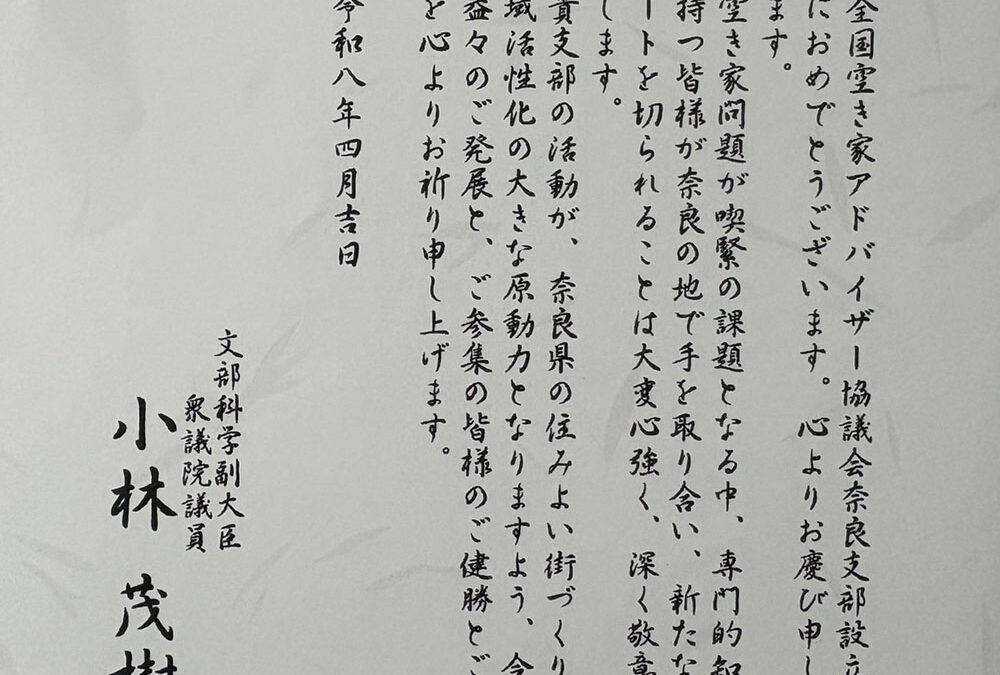 全国空き家アドバイザー協議会奈良支部設立
におめでとうございます。心よりお慶び申し
ます。
空き家問題が喫緊の課題となる中、専門的知
持つ皆様が奈良の地で手を取り合い、新たな
ートを切られることは大変心強く、深く敬意
します。
貴支部の活動が、奈良県の住みよい街づくり
域活性化の大きな原動力となりますよう、今
益々のご発展と、ご参集の皆様のご健勝とご
を心よりお祈り申し上げます。
令和八年四月吉日
文部科学副大臣
衆議院議員
小林 茂樹